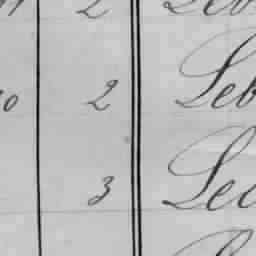 2 Leb
0 2 Leb
3 Lec